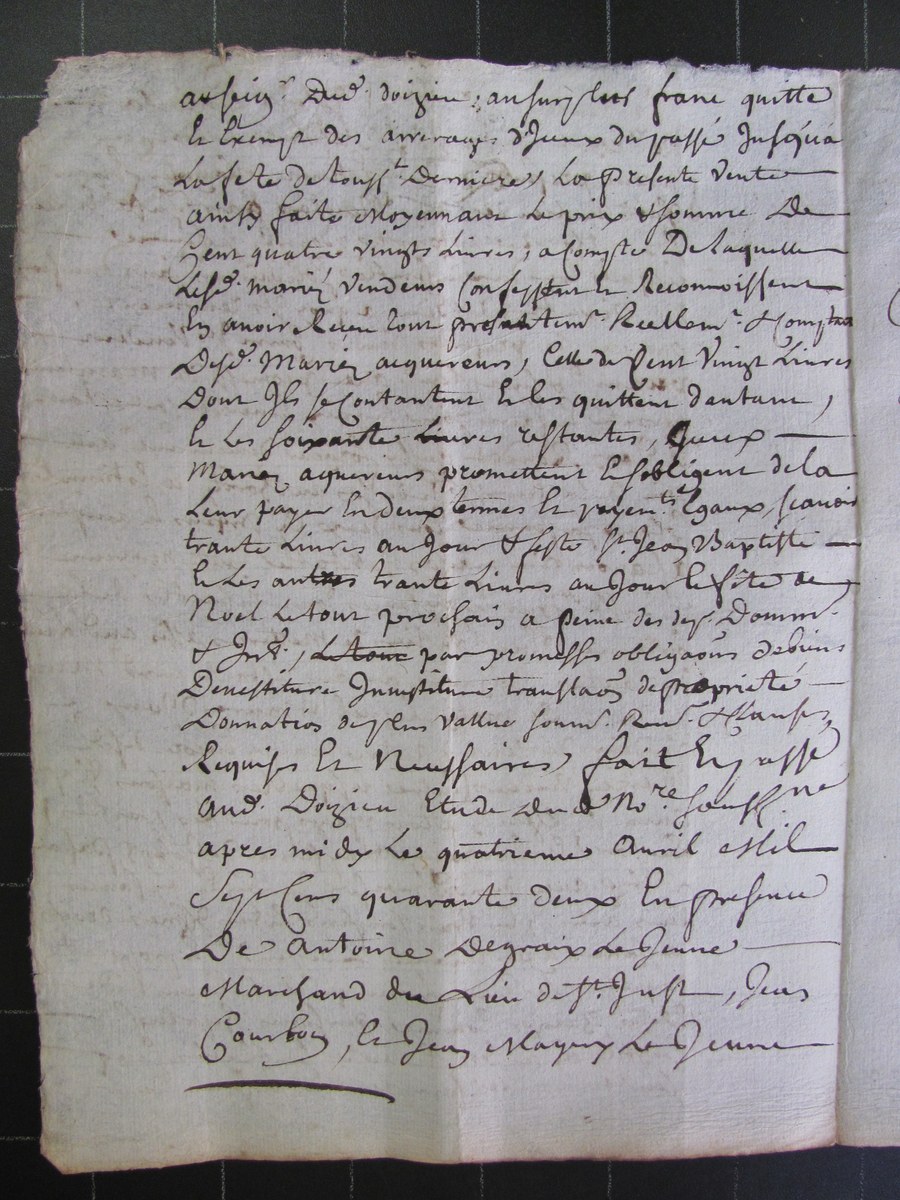 au seigr. Dud. doizieu, au surplus franc quitte
Et Exempt des arrerages d'Jceux du passé Jusqua
La fete de touss.t Derniere, La presente vente
ainsy faite Moyennant Le prix & somme De
Cent quatre vingts Livres, a Compte De laquelle
Lesd. mariez vendeurs Confessent Et Reconnoissent
En avoir Reçeu tout presentem.t Reellem.t & Comptant
Desd. Mariez acquereurs, Celle de Cent vingt Livres
Dont Jls se Contantent Et les quittent dautant,
Et Les soixante Livres restantes, Jceux
Mariez aquereurs promettent Et sobligent de la
Leur payer En deux termes Et payem.ts Egaux, scavoir
trante Livres au Jour & feste St. Jean Baptiste
Et Les autres trante Livres au Jour & fête de
Noel Le tout prochain a peine des dep. Domm.
& Jnt., Le tout par promesses obligaõns de biens
Devestiture Jnvestiture translaõn de propriété
Donnation de plus vallue soum. Ren. & Clauses
Requises Et Necessaires, fait Et passé
aud. Doizieu Etude dud. No.re souss.né
apres midy Le quatrieme Avril Mil
Sept Cens quarante deux En presence
De Antoine Degraix Le Jeune
Marchand du Lieu de St. Just, Jean
Courbon, Et Jean Mayeux Le Jeune